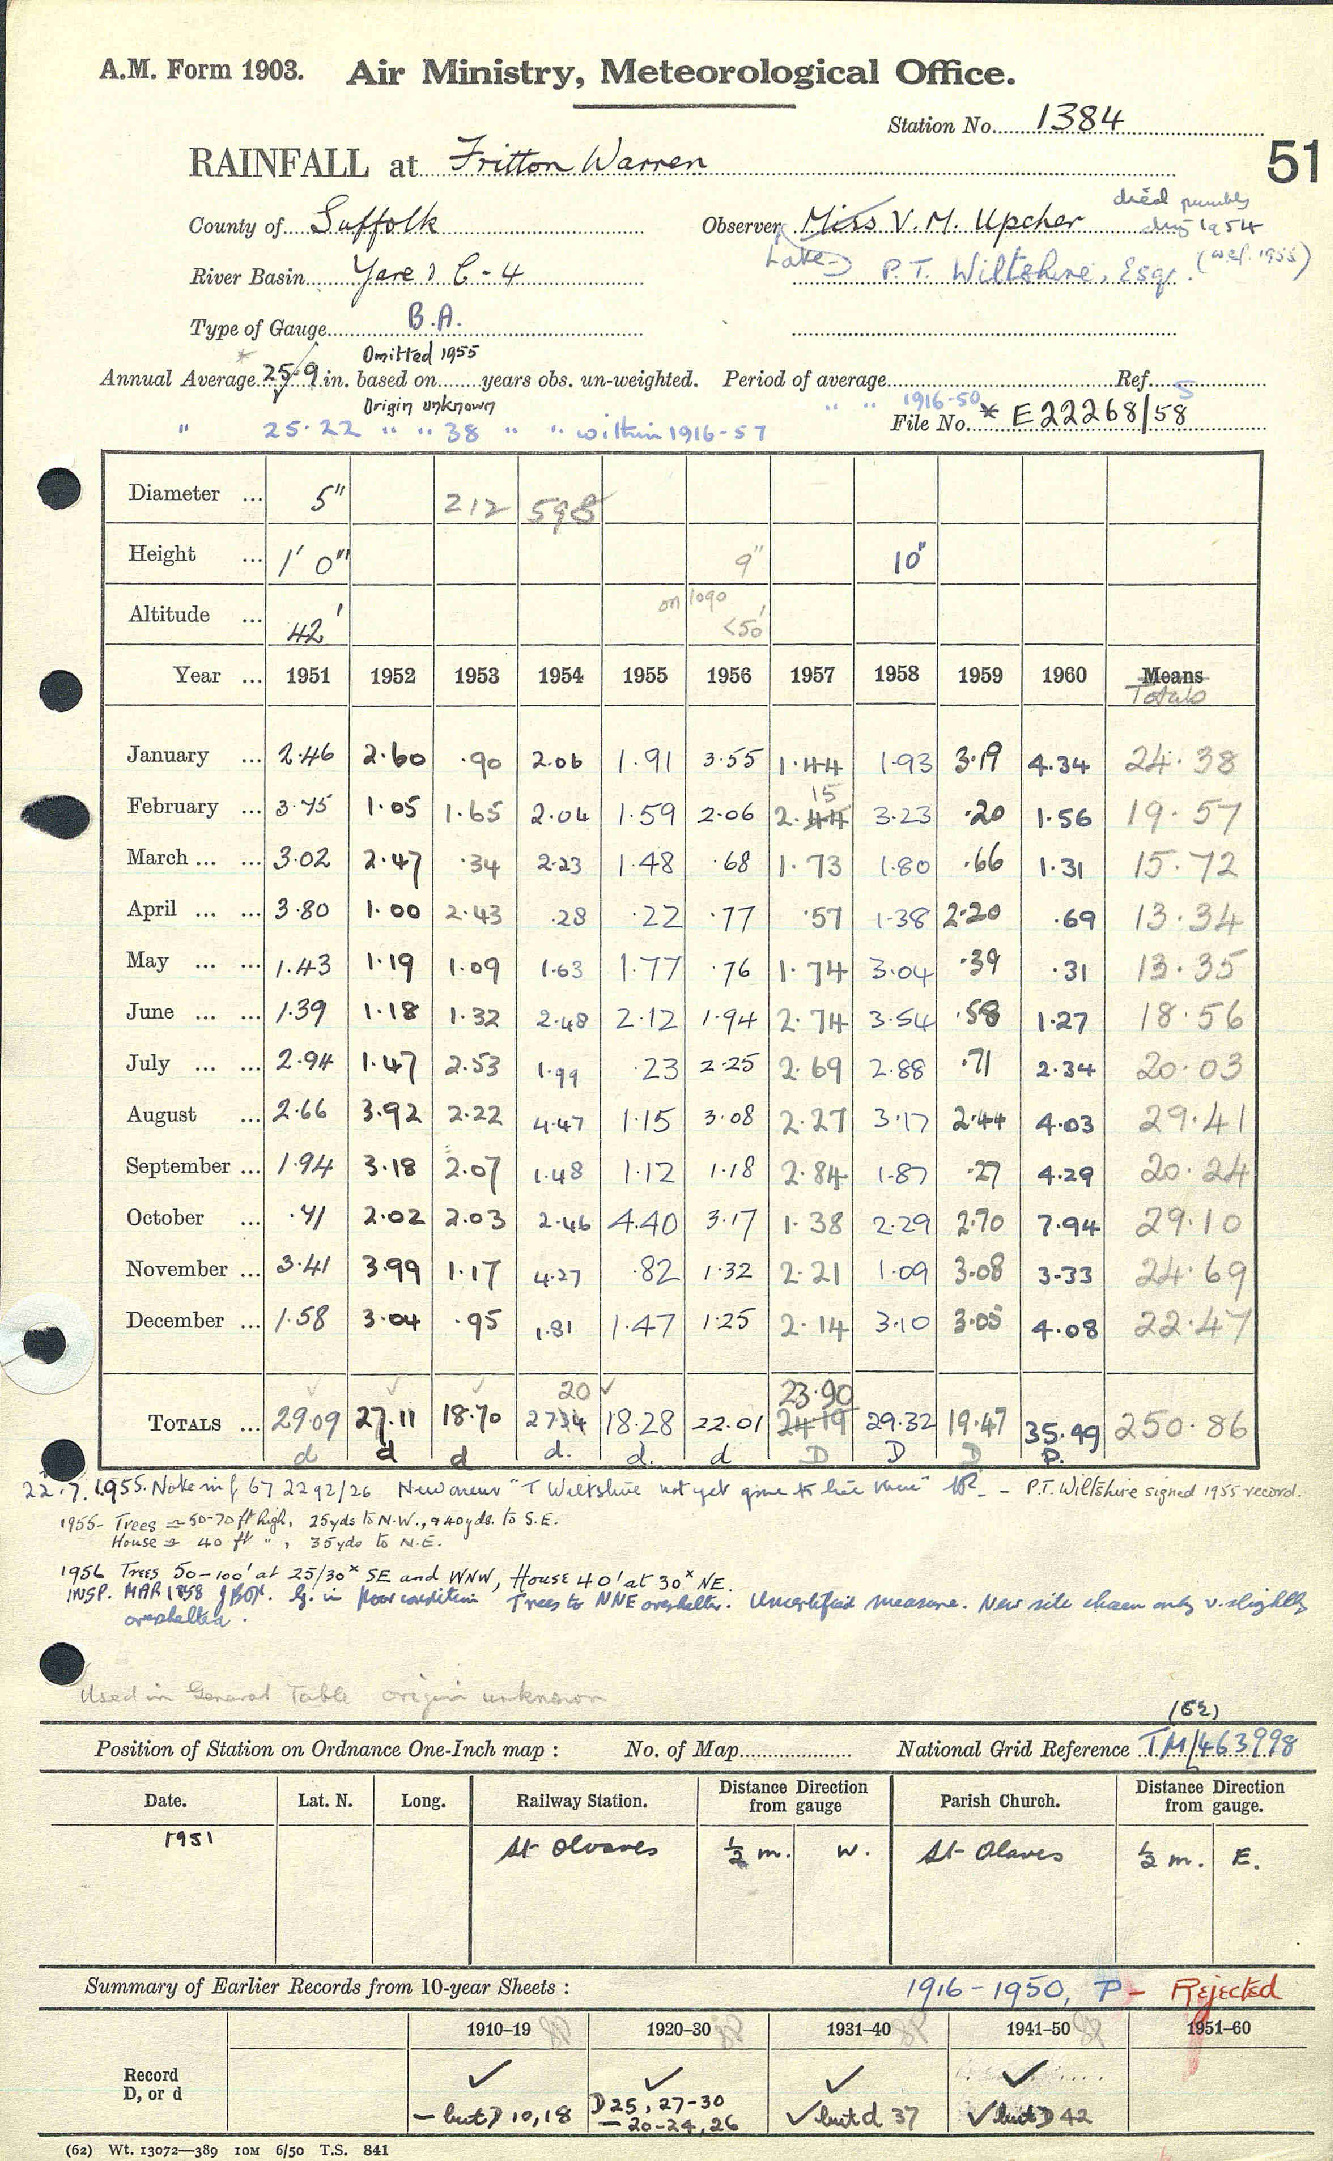 A.M. Form 1903. Air Ministry, Meteorological Office.
Station No. 1384
51
RAINFALL at Fritton Warren
County of Suffolk Observer Miss V. M. Upcher died 1954
River Basin Yare) C-4 Lake P. T. Wiltshire, Esq. (wef. 1955)
Type of Gauge B.A.
Omitted 1955
Annual Average * 25.9 in. based on years obs. un-weighted. Period of average Ref. S
Origin unknown " " 1916-50
" 25.22 " " 38 " " within 1916-57 File No. * E22268/58
Diameter ... 5" 212 598
Height ... 1' 0" 9" 10"
Altitude ... 42' on 1090 <50'
Year ... 1951 1952 1953 1954 1955 1956 1957 1958 1959 1960 Means
Totals
January ... 2.46 2.60 .90 2.06 1.91 3.55 1.44 1.93 3.19 4.34 24.38
15
February ... 3.75 1.05 1.65 2.04 1.59 2.06 2.44 3.23 .20 1.56 19.57
March ... ... 3.02 2.47 .34 2.23 1.48 .68 1.73 1.80 .66 1.31 15.72
April ... ... 3.80 1.00 2.43 .28 .22 .77 .57 1.38 2.20 .69 13.34
May ... ... 1.43 1.19 1.09 1.63 1.77 .76 1.74 3.04 .39 .31 13.35
June ... ... 1.39 1.18 1.32 2.48 2.12 1.94 2.74 3.54 .58 1.27 18.56
July ... ... 2.94 1.47 2.53 1.99 .23 2.25 2.69 2.88 .71 2.34 20.03
August ... 2.66 3.92 2.22 4.47 1.15 3.08 2.27 3.17 2.44 4.03 29.41
September ... 1.94 3.18 2.07 1.48 1.12 1.18 2.84 1.87 .27 4.29 20.24
October ... .71 2.02 2.03 2.46 4.40 3.17 1.38 2.29 2.70 7.94 29.10
November ... 3.41 3.99 1.17 4.27 .82 1.32 2.21 1.09 3.08 3.33 24.69
December ... 1.58 3.04 .95 1.81 1.47 1.25 2.14 3.10 3.05 4.08 22.47
✓ ✓ ✓ 20 ✓ 23.90
TOTALS ... 29.09 27.11 18.70 2734 18.28 22.01 24.19 29.32 19.47 35.49 250.86
d d d d. d. d D D D P.
22.7.1955. Note in f 67 2292/26 New owner "T Wiltshire not yet gone to live there" - P.T. Wiltshire signed 1955 record.
1955- Trees = 50-70 ft high, 25yds to N.W., & 40yds. to S.E.
House = 40 ft ", 35yds to N.E.
1956 Trees 50-100' at 25/30x SE and WNW, House 40' at 30x NE.
INSP. MAR 1958 G. in poor condition Trees to NNE overshelter. Uncertified measure. New site chosen only v. slightly
oversheltered.
Used in General Table origin unknown
(62)
Position of Station on Ordnance One-Inch map : No. of Map National Grid Reference TM/463998
Date. Lat. N. Long. Railway Station. Distance from gauge Direction Parish Church. Distance Direction from gauge.
1951 St Olaves ½ m. W. St Olaves ½ m. E.
Summary of Earlier Records from 10-year Sheets : 1916-1950, P - Rejected
1910–19 1920–30 1931–40 1941–50 1951–60
Record ✓ ✓ ✓ ✓
D, or d - but D 10, 18 D 25, 27-30 ✓ but d 37 ✓ but D 42
- 20-24, 26
(62) Wt. 13072—389 10M 6/50 T.S. 841